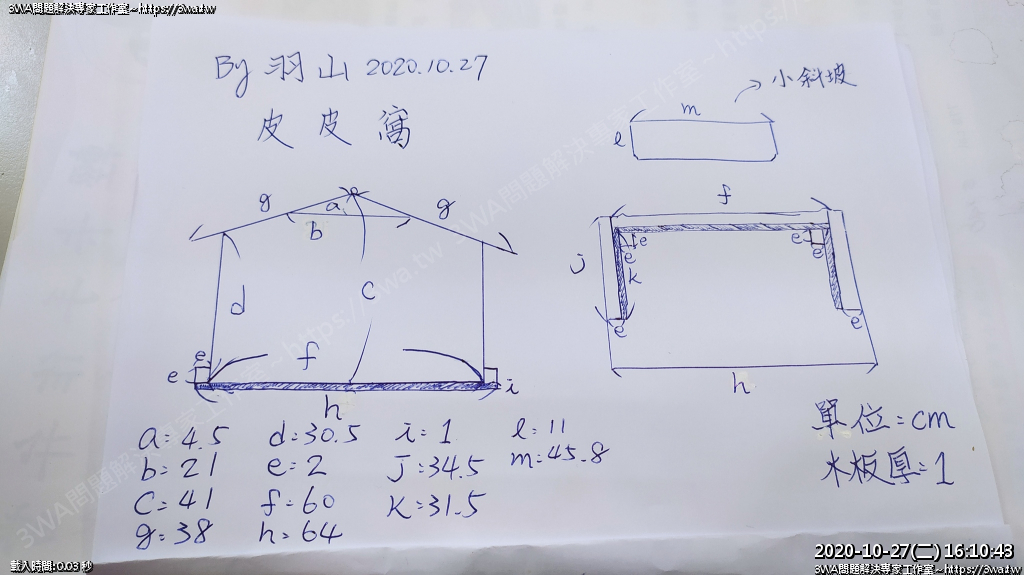 3WA問題解決專家工作室~https://3wa.tw
By 羽山 2020.10.27
皮皮窩
小斜坡
m
l
g
a
g
b
f
d
c
j
e
e
e
e
k
f
e
e
e
e
i
h
h
a=4.5 d=30.5 i=1 l=11
b=21 e=2 j=34.5 m=45.8
c=41 f=60 k=31.5
g=38 h=64
單位=cm
木板厚=1
2020-10-27(二) 16:10:43
載入時間:0.03 秒
3WA問題解決專家工作室~https://3wa.tw